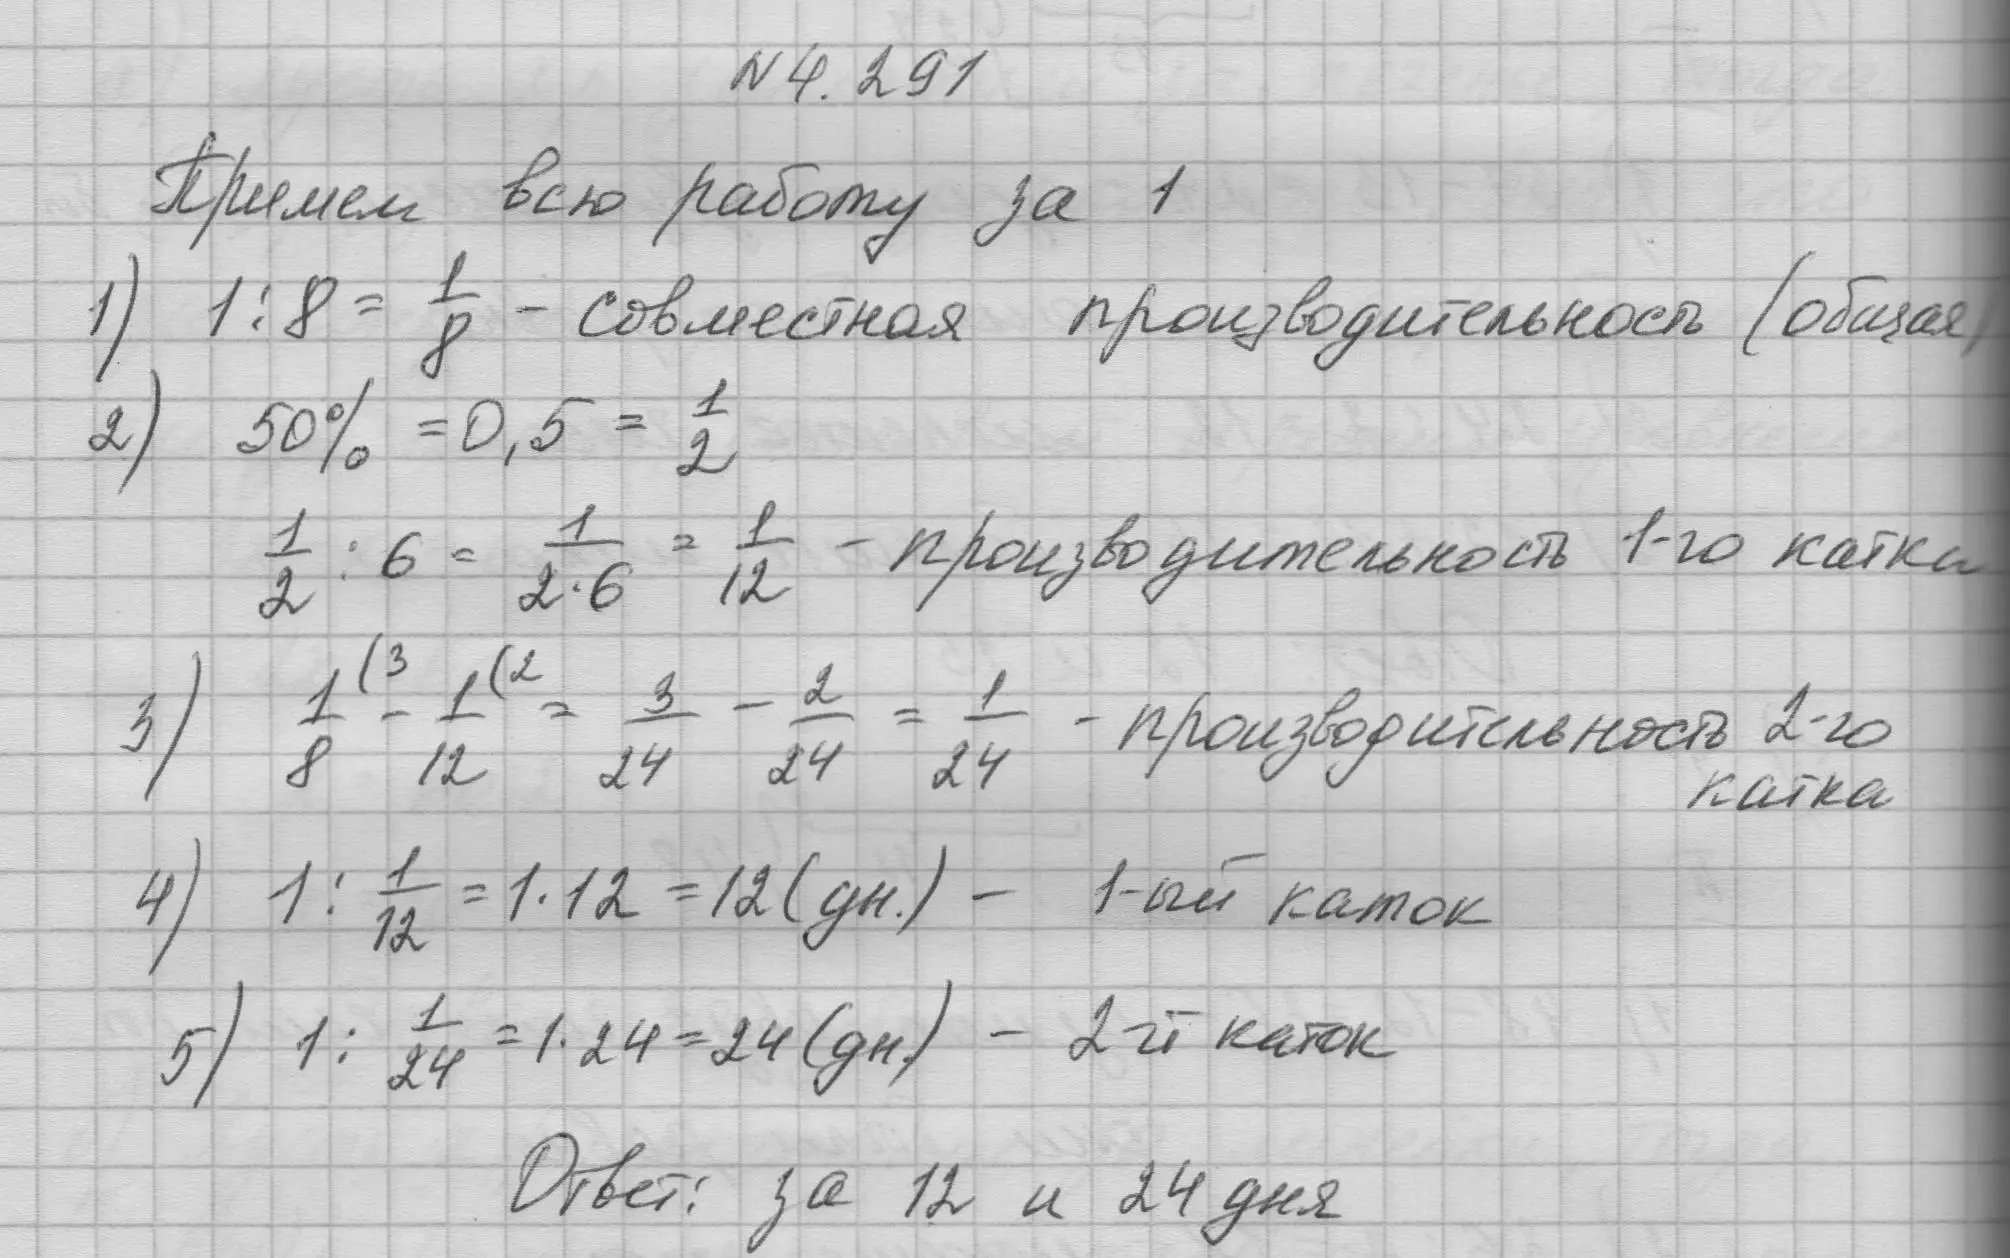 №4.291
Примем всю работу за 1
1) 1:8 = 1/8 - совместная производительность (общая)
2) 50% = 0,5 = 1/2
1/2 : 6 = 1/(2·6) = 1/12 - производительность 1-го катка
3) 1/8 (3 - 1/12 (2 = 3/24 - 2/24 = 1/24 - производительность 2-го
катка
4) 1 : 1/12 = 1·12 = 12 (дн.) - 1-ый каток
5) 1 : 1/24 = 1·24 = 24 (дн.) - 2-й каток
Ответ: за 12 и 24 дня